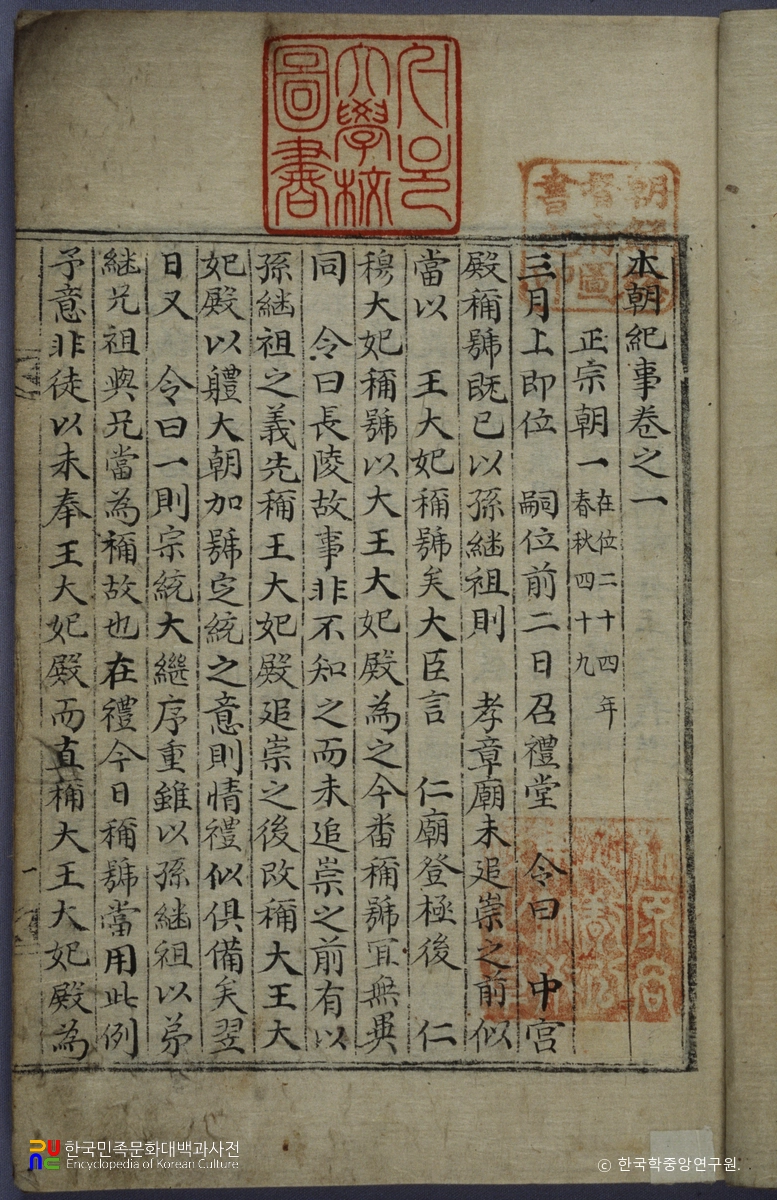 本朝紀事卷之一
正宗朝一 在位二十四年 春秋四十九
三月上即位 嗣位前二日召禮堂 令曰 中宮
殿稱號旣已以孫継祖則 孝章廟未追崇之前似
當以 王大妃稱號矣大臣言 仁廟登極後 仁
穆大妃稱號以大王大妃殿為之今番稱號宜無異
同 令曰長陵故事非不知之而未追崇之前有以
孫継祖之義先稱王大妃殿追崇之後改稱大王大
妃殿以軆大朝加號定統之意則情禮似俱備矣翌
日又 令曰一則宗統大継序重雖以孫継祖以弟
継兄祖與兄當為稱故也在禮今日稱號當用此例
予意非徒以未奉王大妃殿而直稱大王大妃殿為
大學校
圖書
朝鮮
圖
書
한국민족문화대백과사전
Encyclopedia of Korean Culture
ⓒ 한국학중앙연구원.